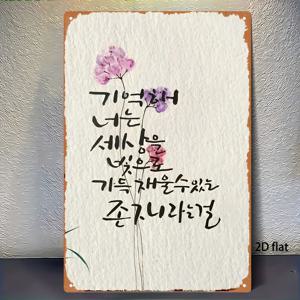 기억해
너는
세상을
빛으로
가득 채울 수 있는
존재라는걸
2D flat